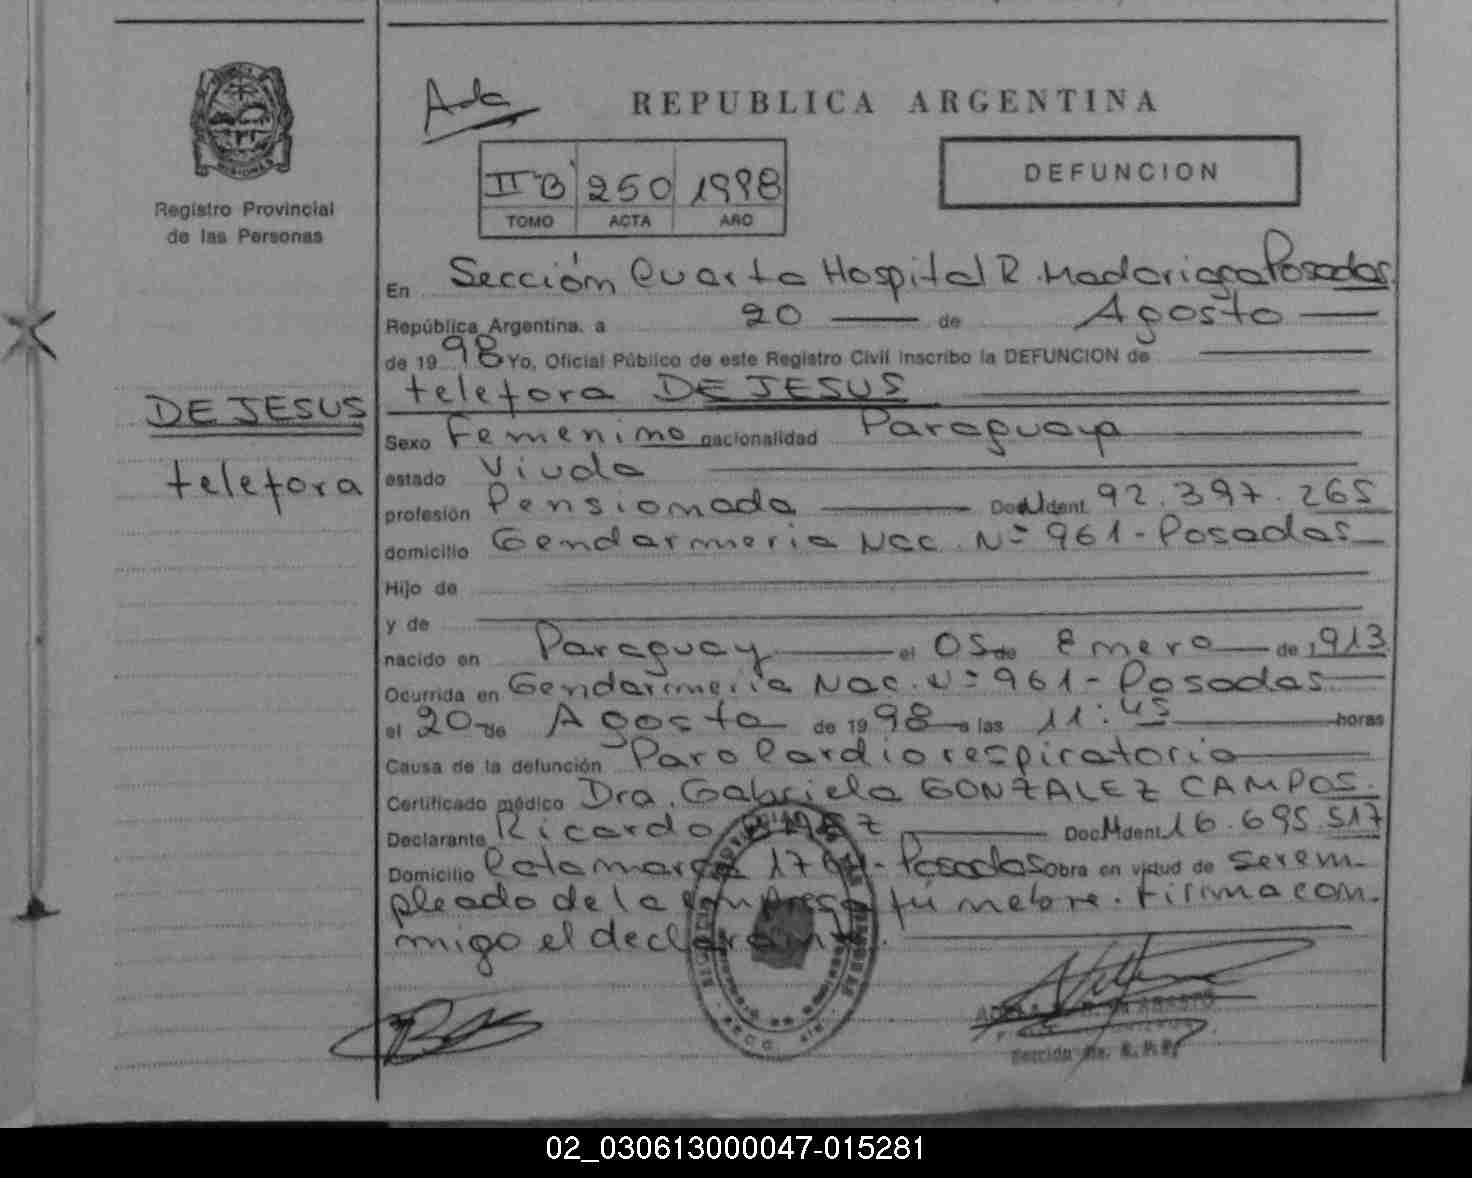 Ada
REPUBLICA ARGENTINA
II B 250 1998
TOMO ACTA AÑO
DEFUNCION
Registro Provincial
de las Personas
En Sección Cuarta Hospital R. Madariaga Posadas
República Argentina, a 20 de Agosto
de 1998 Yo, Oficial Público de este Registro Civil inscribo la DEFUNCION de
telefora DE JESUS
DE JESUS
telefora
Sexo Femenino nacionalidad Paraguaya
estado Viuda
profesión Pensionada Doc. Ident. 92.397.265
domicilio Gendarmeria Nac. Nº 961 - Posadas
Hijo de
y de
nacido en Paraguay el 05 de Enero de 1913
Ocurrida en Gendarmeria Nac. Nº 961 - Posadas
el 20 de Agosto de 1998 a las 11:45 horas
Causa de la defunción Paro Cardiorespiratorio
Certificado médico Dra. Gabriela GONZALEZ CAMPOS.
Declarante Ricardo Doc. Ident. 16.695.517
Domicilio Catamarca - Posadas Obra en virtud de ser em-
pleado de la empresa fúnebre. Firma con-
migo el declarante.
Sección 4a. R.P.P.
02_030613000047-015281